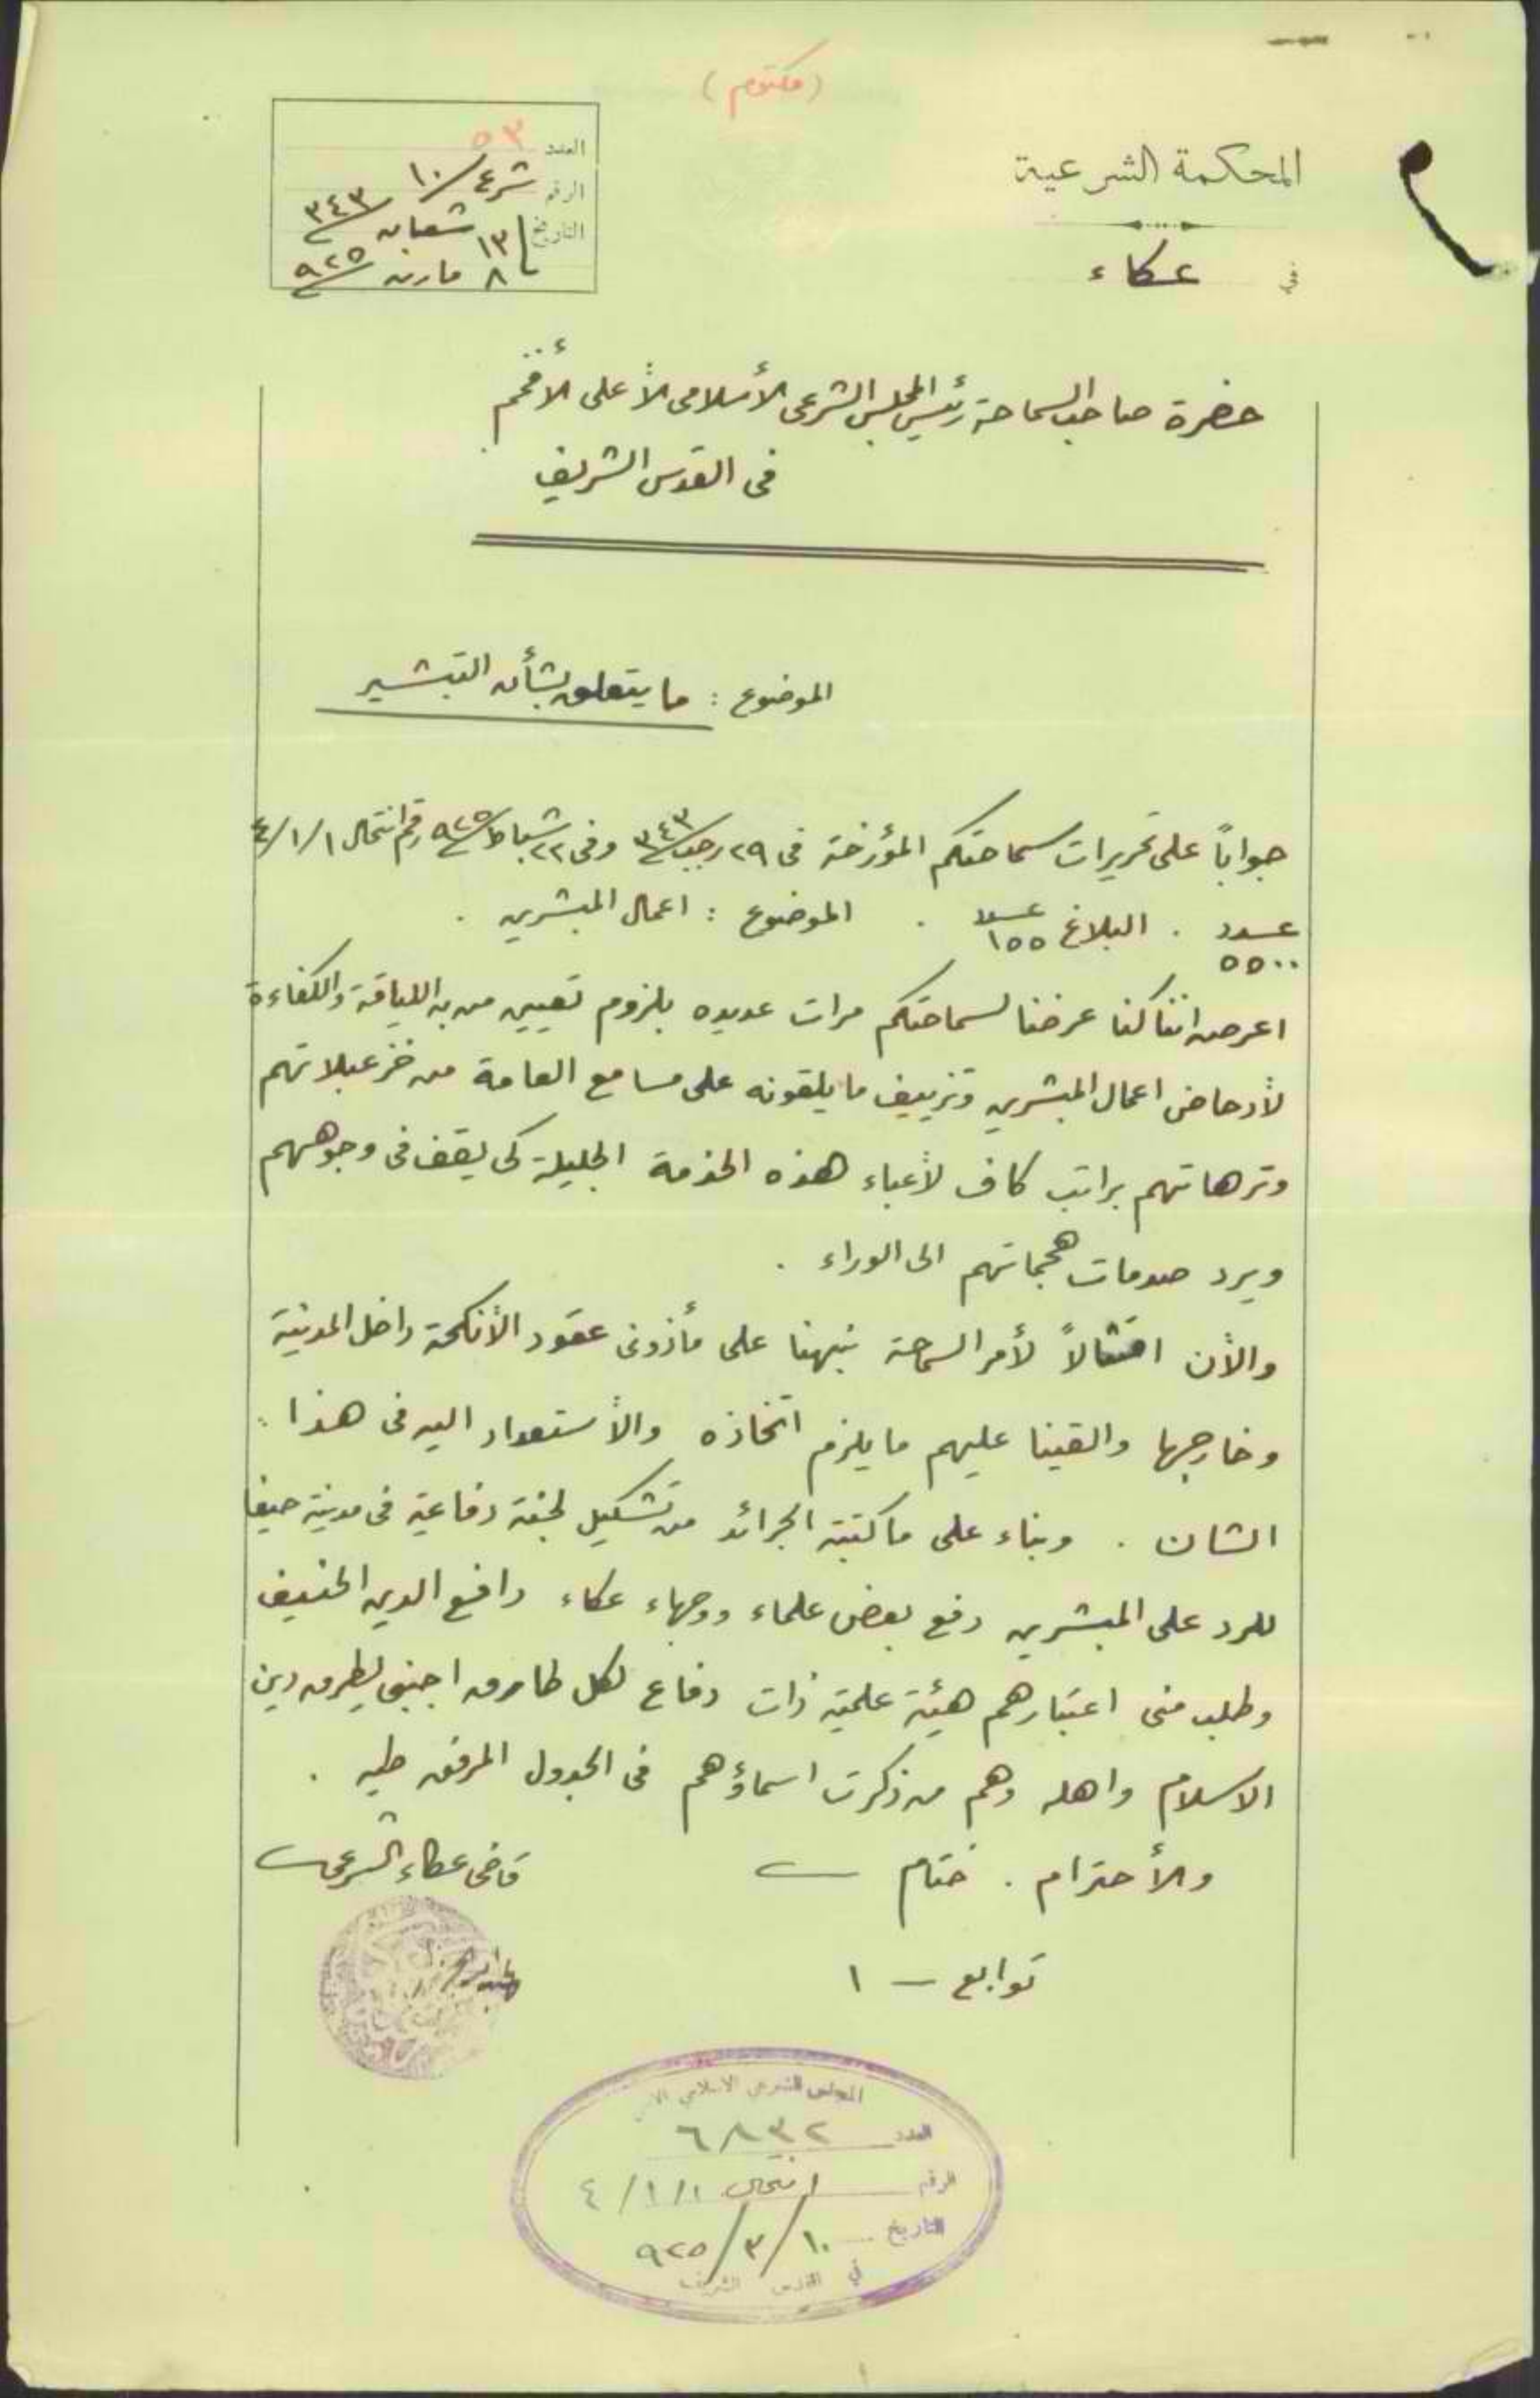 (مكتوم)
المحكمة الشرعية
في عكاء
العدد ٥٣
الرقم شرع ١٠/
التاريخ ١٣ شعبان ٣٤٣
٨ مارت ٩٢٥
حضرة صاحب السماحة رئيس المجلس الشرعى الأسلامى الأعلى الأفخم
فى القدس الشريف
الموضوع : ما يتعلق بشأن التبشير
جواباً على تحريرات سماحتكم المؤرخة فى ٢٩ رجب ٣٤٣ وفى ٢٢ شباط ٩٢٥ رقم انتحال ٤/١/١
عدد ٥٥٠٠ . البلاغ عدد ١٥٥ . الموضوع : اعمال المبشرين .
اعرض اننا كنا عرضنا لسماحتكم مرات عديده بلزوم تعيين من به اللياقة والكفاءة
لأدحاض اعمال المبشرين وتزييف ما يلقونه على مسامع العامة من خزعبلاتهم
وترهاتهم براتب كاف لأعباء هذه الخدمة الجليلة كى يقف فى وجوههم
ويرد صدمات هجماتهم الى الوراء .
والأن امتثالاً لأمر السماحة نبهنا على مأذونى عقود الأنكحة داخل المدينة
وخارجها والقينا عليهم ما يلزم اتخاذه والأستعداد اليه فى هذا
الشان . وبناء على ما كتبته الجرائد من تشكيل لجنة دفاعية فى مدينة حيفا
للرد على المبشرين دفع بعض علماء ووجهاء عكاء دافع الدين الحنيف
وطلب منى اعتبارهم هيئة علمية ذات دفاع لكل طارق اجنبى يطرق دين
الاسلام واهله وهم من ذكرت اسماؤهم فى الجدول المرفق طيه .
والأحترام . ختام
قاضى عكاء الشرعى
توابع – ١
المجلس الشرعي الاسلامي
العدد ٦٨٣٢
الرقم انتحال ٤/١/١
التاريخ ١٠/٣/٩٢٥
في القدس الشريف